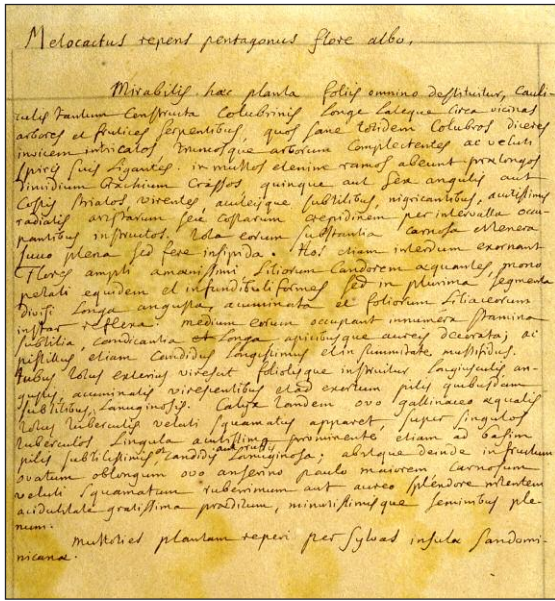 Melocactus repens pentagonus flore albo.
Mirabilis hæc planta foliis omnino destituitur, cauli-
culis tantum constructa colubrinis, longe lateque circa vicinas
arbores et frutices serpentibus, quos sane totidem colubros diceres
invicem intricatos truncosque arborum complectentes ac veluti
spiris suis ligantes. in multos etenim ramos abeunt prælongos
dimidium brachium crassos, quinque aut sex angulis aut
costis striatos, virentes, aculeisque subtilibus, nigricantibus, acutissimis
radiatis aristarum seu costarum crepidinem per intervalla occu-
pantibus instructos. tota eorum substantia carnosa et tenera
succo plena sed fere insipida. Hos etiam interdum exornant
Flores ampli amænissimi, Liliorum candorem æquantes, mono
petali equidem et infundibuliformes sed in plurima segmenta
divisi longa angusta, acuminata et foliorum Liliaceorum
instar reflexa: medium eorum occupant innumera stamina
subtilia, candicantia et longa apicibusque aureis decorata; ac
pistillus etiam candidus longissimus et in summitate multifidus.
tubus totus exterius virescit foliolisque instruitur, longiusculis an-
gustis, acuminatis virescentibus et ad exortum pilis quibusdam
subtilibus, lanuginosis. Calix tandem ovo gallinaceo æqualis
totus tuberculis veluti squamatus apparet, super singulos
tuberculos lingula acutissima prominente etiam ad basim
pilis subtilissimis, candidis lanuginosa; abitque deinde in fructum
ovatum oblongum ovo anserino paulo maiorem carnosum
veluti squamatum ruberrimum aut aureo splendore nitentem
aciditate gratissima præditum, minutissimisque seminibus ple-
num.
Multoties plantam reperi per sylvas insulæ Sandomi-
nicanæ.